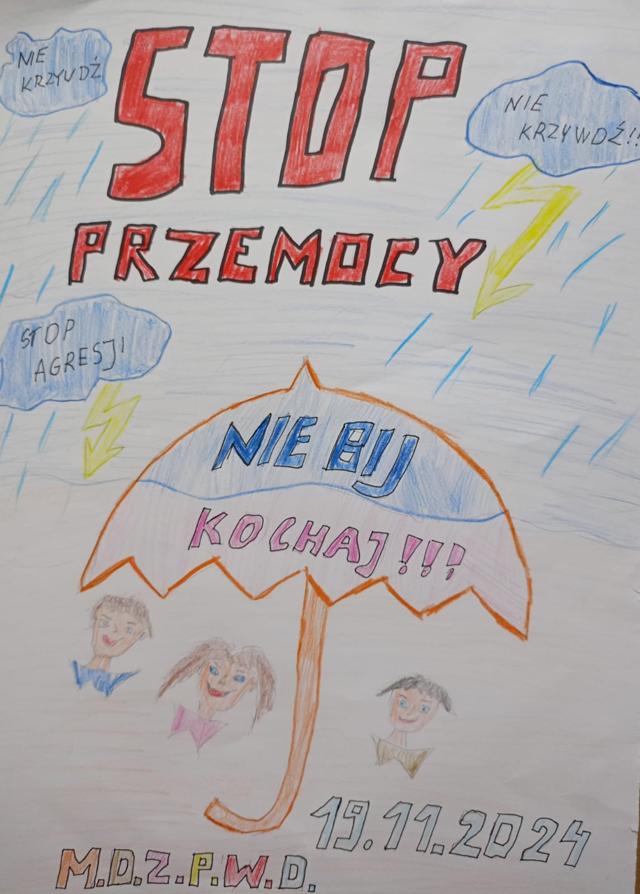 STOP
PRZEMOCY
NIE
KRZYUDŹ
NIE
KRZYWDŹ!!
STOP
AGRESJI
NIE BIJ
KOCHAJ!!!
19.11.2024
M.D.Z.P.W.D.